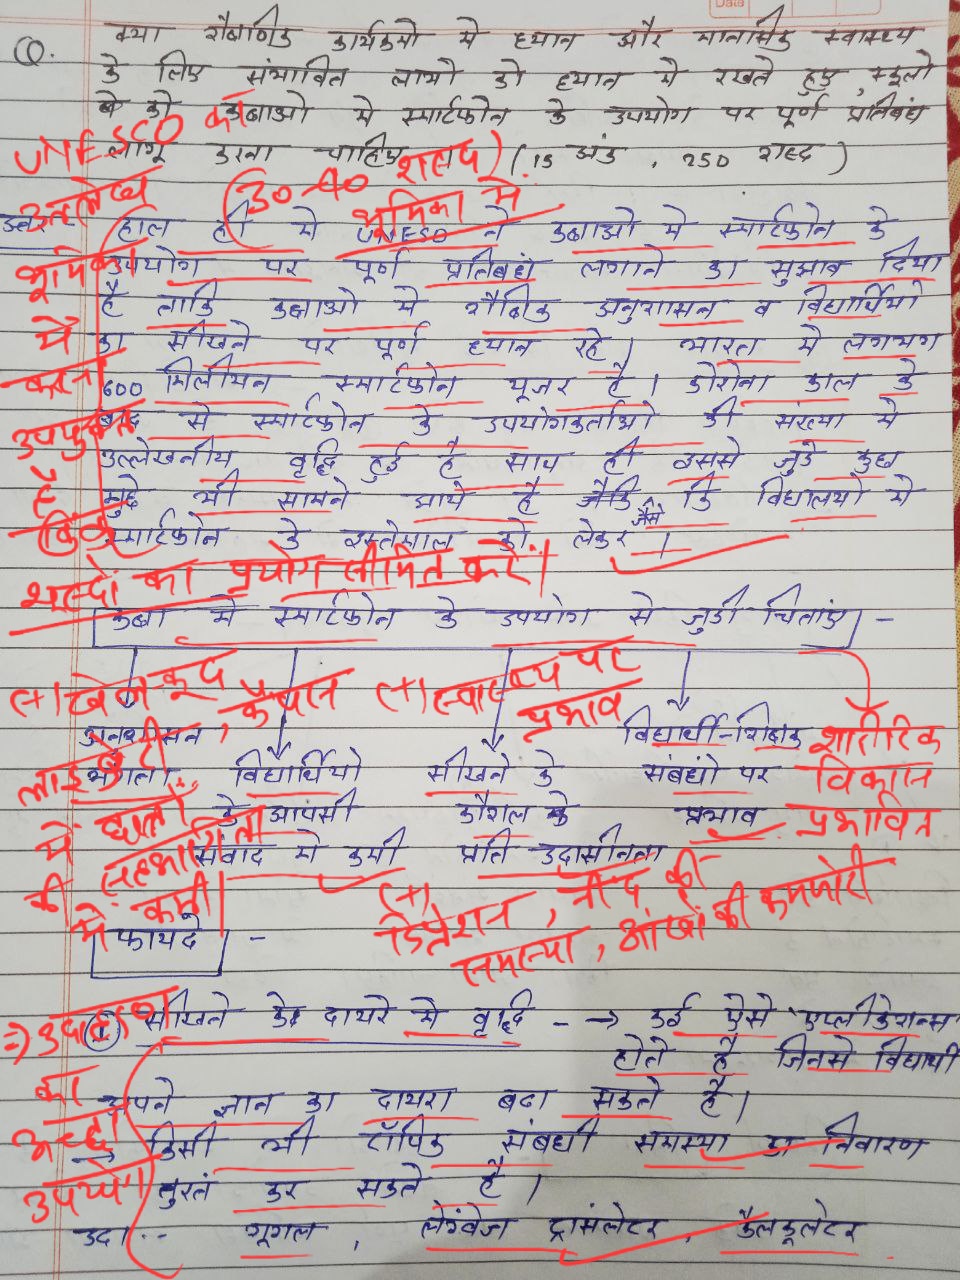 Date
Q. क्या शैक्षणिक कार्यक्रमो मे ध्यान और मानसिक स्वास्थ्य
के लिए संभावित लाभो को ध्यान मे रखते हुए, स्कूलो
को कक्षाओ मे स्मार्टफोन के उपयोग पर पूर्ण प्रतिबंध
लागू करना चाहिए (15 अंक, 250 शब्द)
UNESCO का
उल्लेख
भूमिका
में
करना
उपयुक्त
है
किंतु
(30-40 शब्द)
भूमिका में
उत्तर हाल ही मे UNESO ने कक्षाओ मे स्मार्टफोन के
उपयोग पर पूर्ण प्रतिबंध लगाने का सुझाव दिया
है ताकि कक्षाओ मे शैक्षिक अनुशासन व विद्यार्थियो
का सीखने पर पूर्ण ध्यान रहे। भारत मे लगभग
600 मिलीयन स्मार्टफोन यूजर है। कोरोना काल के
बाद से स्मार्टफोन के उपयोगकर्ताओ की संख्या मे
उल्लेखनीय वृद्धि हुई है साथ ही इससे जुडे कुछ
मुद्दे भी सामने आये है जैसे कि विद्यालयो मे
स्मार्टफोन के इस्तेमाल को लेकर।
शब्दों का प्रयोग सीमित करें।
कक्षा मे स्मार्टफोन के उपयोग से जुडी चिंताए -
(+) खेल कूद के प्रति (+) स्वास्थ्य पर
प्रभाव
अनुशासन विद्यार्थी-शिक्षक शारीरिक
विद्यार्थियो सीखने के संबंधो पर विकास
के आपसी कौशल के प्रभाव प्रभावित
संवाद मे कमी प्रति उदासीनता
में छात्रों
की सहभागिता
में कमी।
(+)
डिप्रेशन, नींद की
समस्या, आंखों की कमजोरी
फायदे -
⇒ उदाहरण
का
अच्छा
उपयोग।
① सीखने के दायरे मे वृद्धि --→ कई ऐसे एप्लीकेशन्स
होते है जिनसे विद्यार्थी
अपने ज्ञान का दायरा बढा सकते है।
→ किसी भी टॉपिक संबधी समस्या का निवारण
तुरतं कर सकते है।
उदा.-- गूगल, लेंग्वेज ट्रासंलेटर, कैलकूलेटर